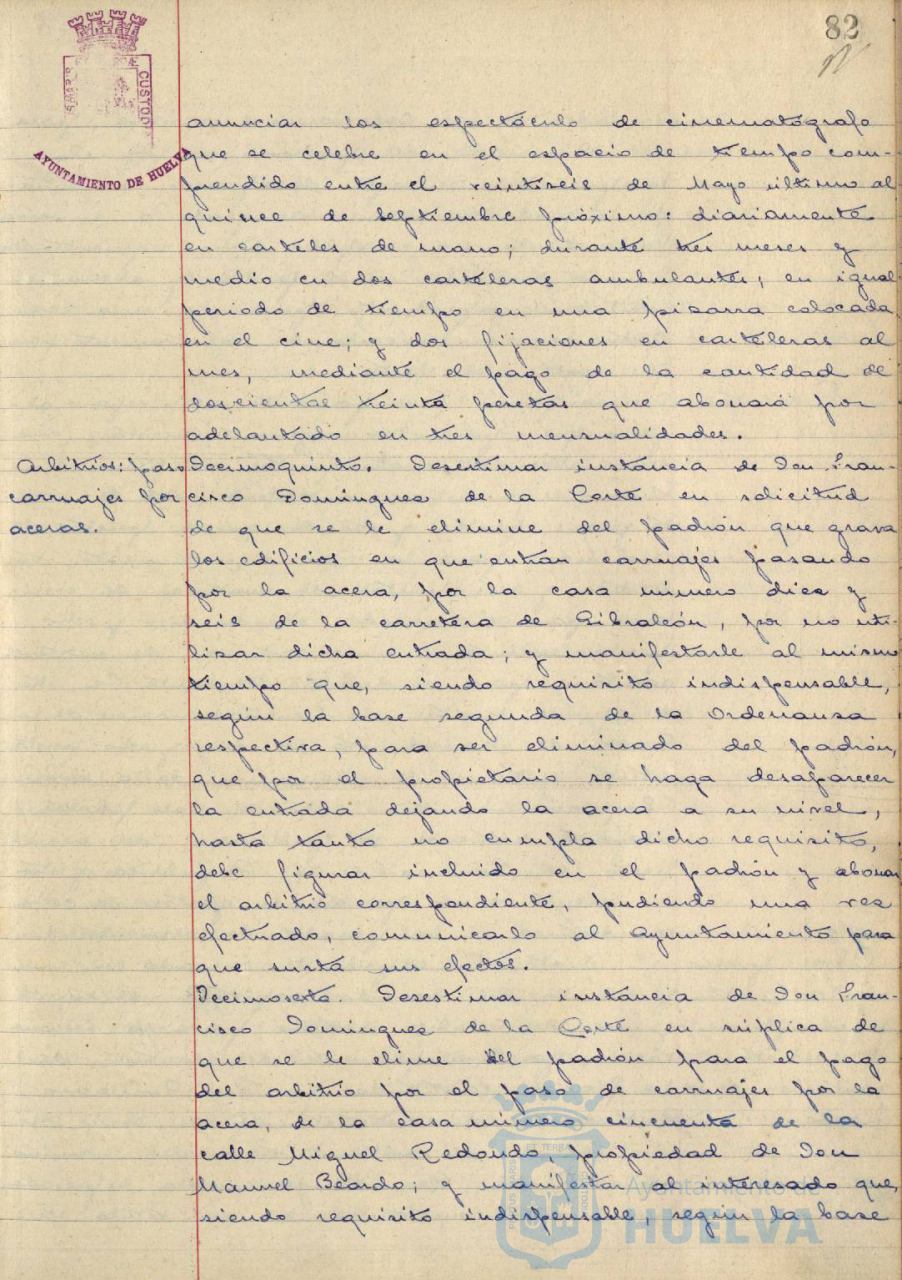 82
CUSTOD
AYUNTAMIENTO DE HUELVA
anunciar los espectáculo de cinematógrafo
que se celebre en el espacio de tiempo com-
prendido entre el veintiseis de Mayo último al
quince de Septiembre próximo: diariamente
en carteles de mano; durante tres meses y
medio en dos carteleras ambulantes; en igual
periodo de tiempo en una pizarra colocada
en el cine; y dos fijaciones en carteleras al
mes, mediante el pago de la cantidad de
doscientas treinta pesetas que abonará por
adelantado en tres mensualidades.
Arbitrios: paso
carruajes por
aceras.
Decimoquinto. Desestimar instancia de Don Fran-
cisco Dominguez de la Corte en solicitud
de que se le elimine del padrón que grava
los edificios en que entran carruajes pasando
por la acera, por la casa número diez y
seis de la carretera de Gibraleón, por no uti-
lizar dicha entrada; y manifestarle al mismo
tiempo que, siendo requisito indispensable,
según la base segunda de la Ordenanza
respectiva, para ser eliminado del padrón,
que por el propietario se haga desaparecer
la entrada dejando la acera a su nivel,
hasta tanto no cumpla dicho requisito,
debe figurar incluido en el padrón y abonar
el arbitrio correspondiente, pudiendo una vez
efectuado, comunicarlo al Ayuntamiento para
que surta sus efectos.
Decimosexto. Desestimar instancia de Don Fran-
cisco Dominguez de la Corte en súplica de
que se le elime del padrón para el pago
del arbitrio por el paso de carruajes por la
acera, de la casa número cincuenta de la
calle Miguel Redondo, propiedad de Don
Manuel Beardo; y manifestar al interesado que,
siendo requisito indispensable, según la base
Ayuntamiento de
HUELVA